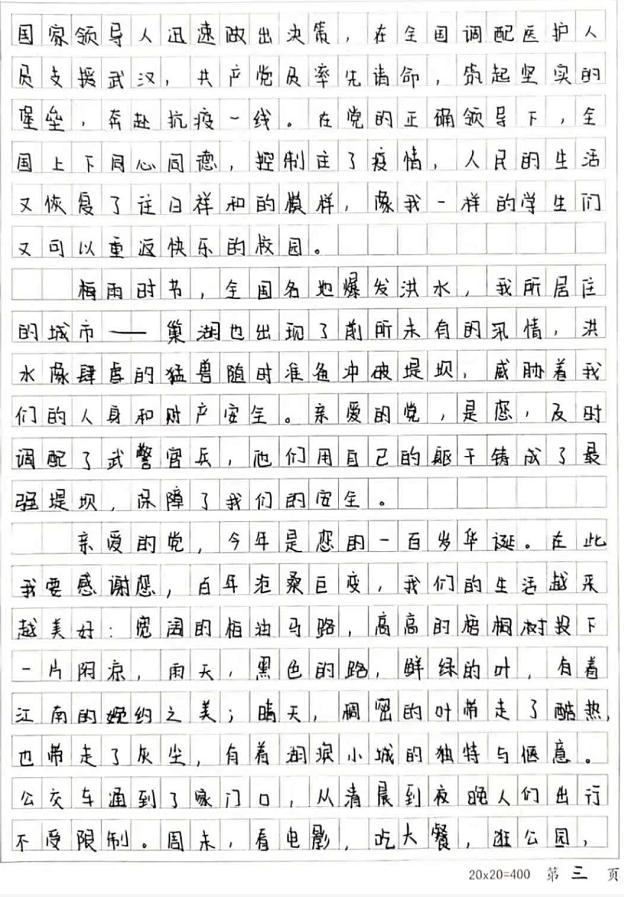 国家领导人迅速做出决策，在全国调配医护人
员支援武汉，共产党员率先请命，筑起坚实的
堡垒，奔赴抗疫一线。在党的正确领导下，全
国上下同心同德，控制住了疫情，人民的生活
又恢复了往日祥和的模样，像我一样的学生们
又可以重返快乐的校园。
梅雨时节，全国各地爆发洪水，我所居住
的城市——巢湖也出现了前所未有的汛情，洪
水像肆虐的猛兽随时准备冲破堤坝，威胁着我
们的人身和财产安全。亲爱的党，是您，及时
调配了武警官兵，他们用自己的躯干铸成了最
强堤坝，保障了我们的安全。
亲爱的党，今年是您的一百岁华诞。在此
我要感谢您，百年沧桑巨变，我们的生活越来
越美好：宽阔的柏油马路，高高的梧桐树投下
一片阴凉，雨天，黑色的路，鲜绿的叶，有着
江南的婉约之美；晴天，稠密的叶带走了酷热，
也带走了灰尘，有着湖滨小城的独特与惬意。
公交车通到了家门口，从清晨到夜晚人们出行
不受限制。周末，看电影，吃大餐，逛公园，
20×20=400 第 三 页